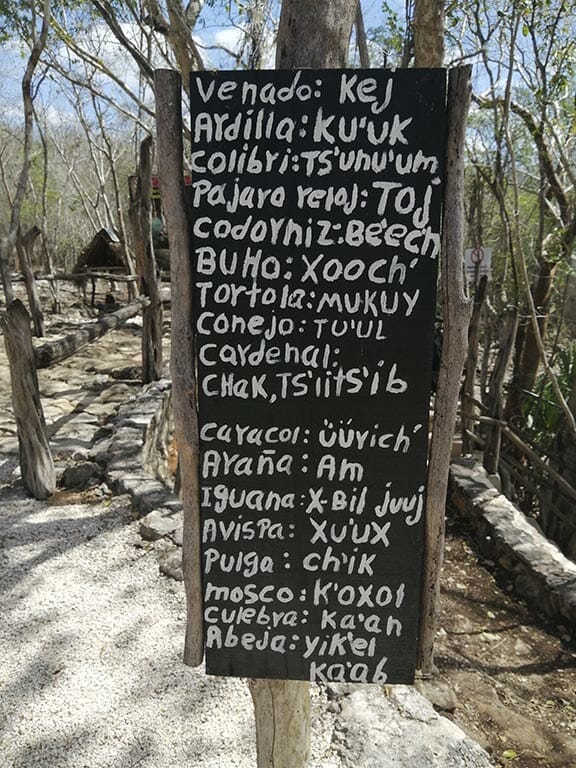 Venado: Kej
Ardilla: KU'UK
Colibri: TS'unu'um
Pajaro reloj: Toj
Codorniz: Be'ech
BUHO: XOOCH'
Tortola: MUKUY
Conejo: TU'UL
Cardenal:
CHaK, TS'iiTS'ib
Caracol: üÜrich'
Araña: Am
Iguana: X-Bil juuj
Avispa: XU'UX
Pulga: ch'iK
mosco: K'oxol
culebra: Ka'an
Abeja: yik'el
Ka'ab